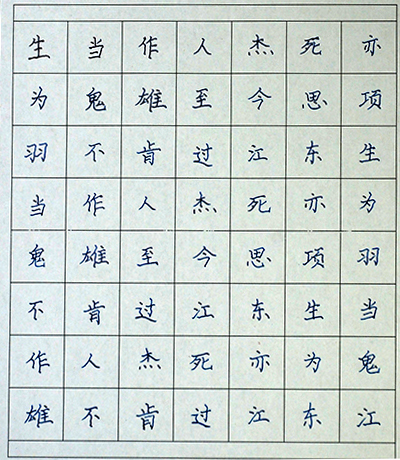 生当作人杰死亦
为鬼雄至今思项
羽不肯过江东生
当作人杰死亦为
鬼雄至今思项羽
不肯过江东生当
作人杰死亦为鬼
雄不肯过江东江